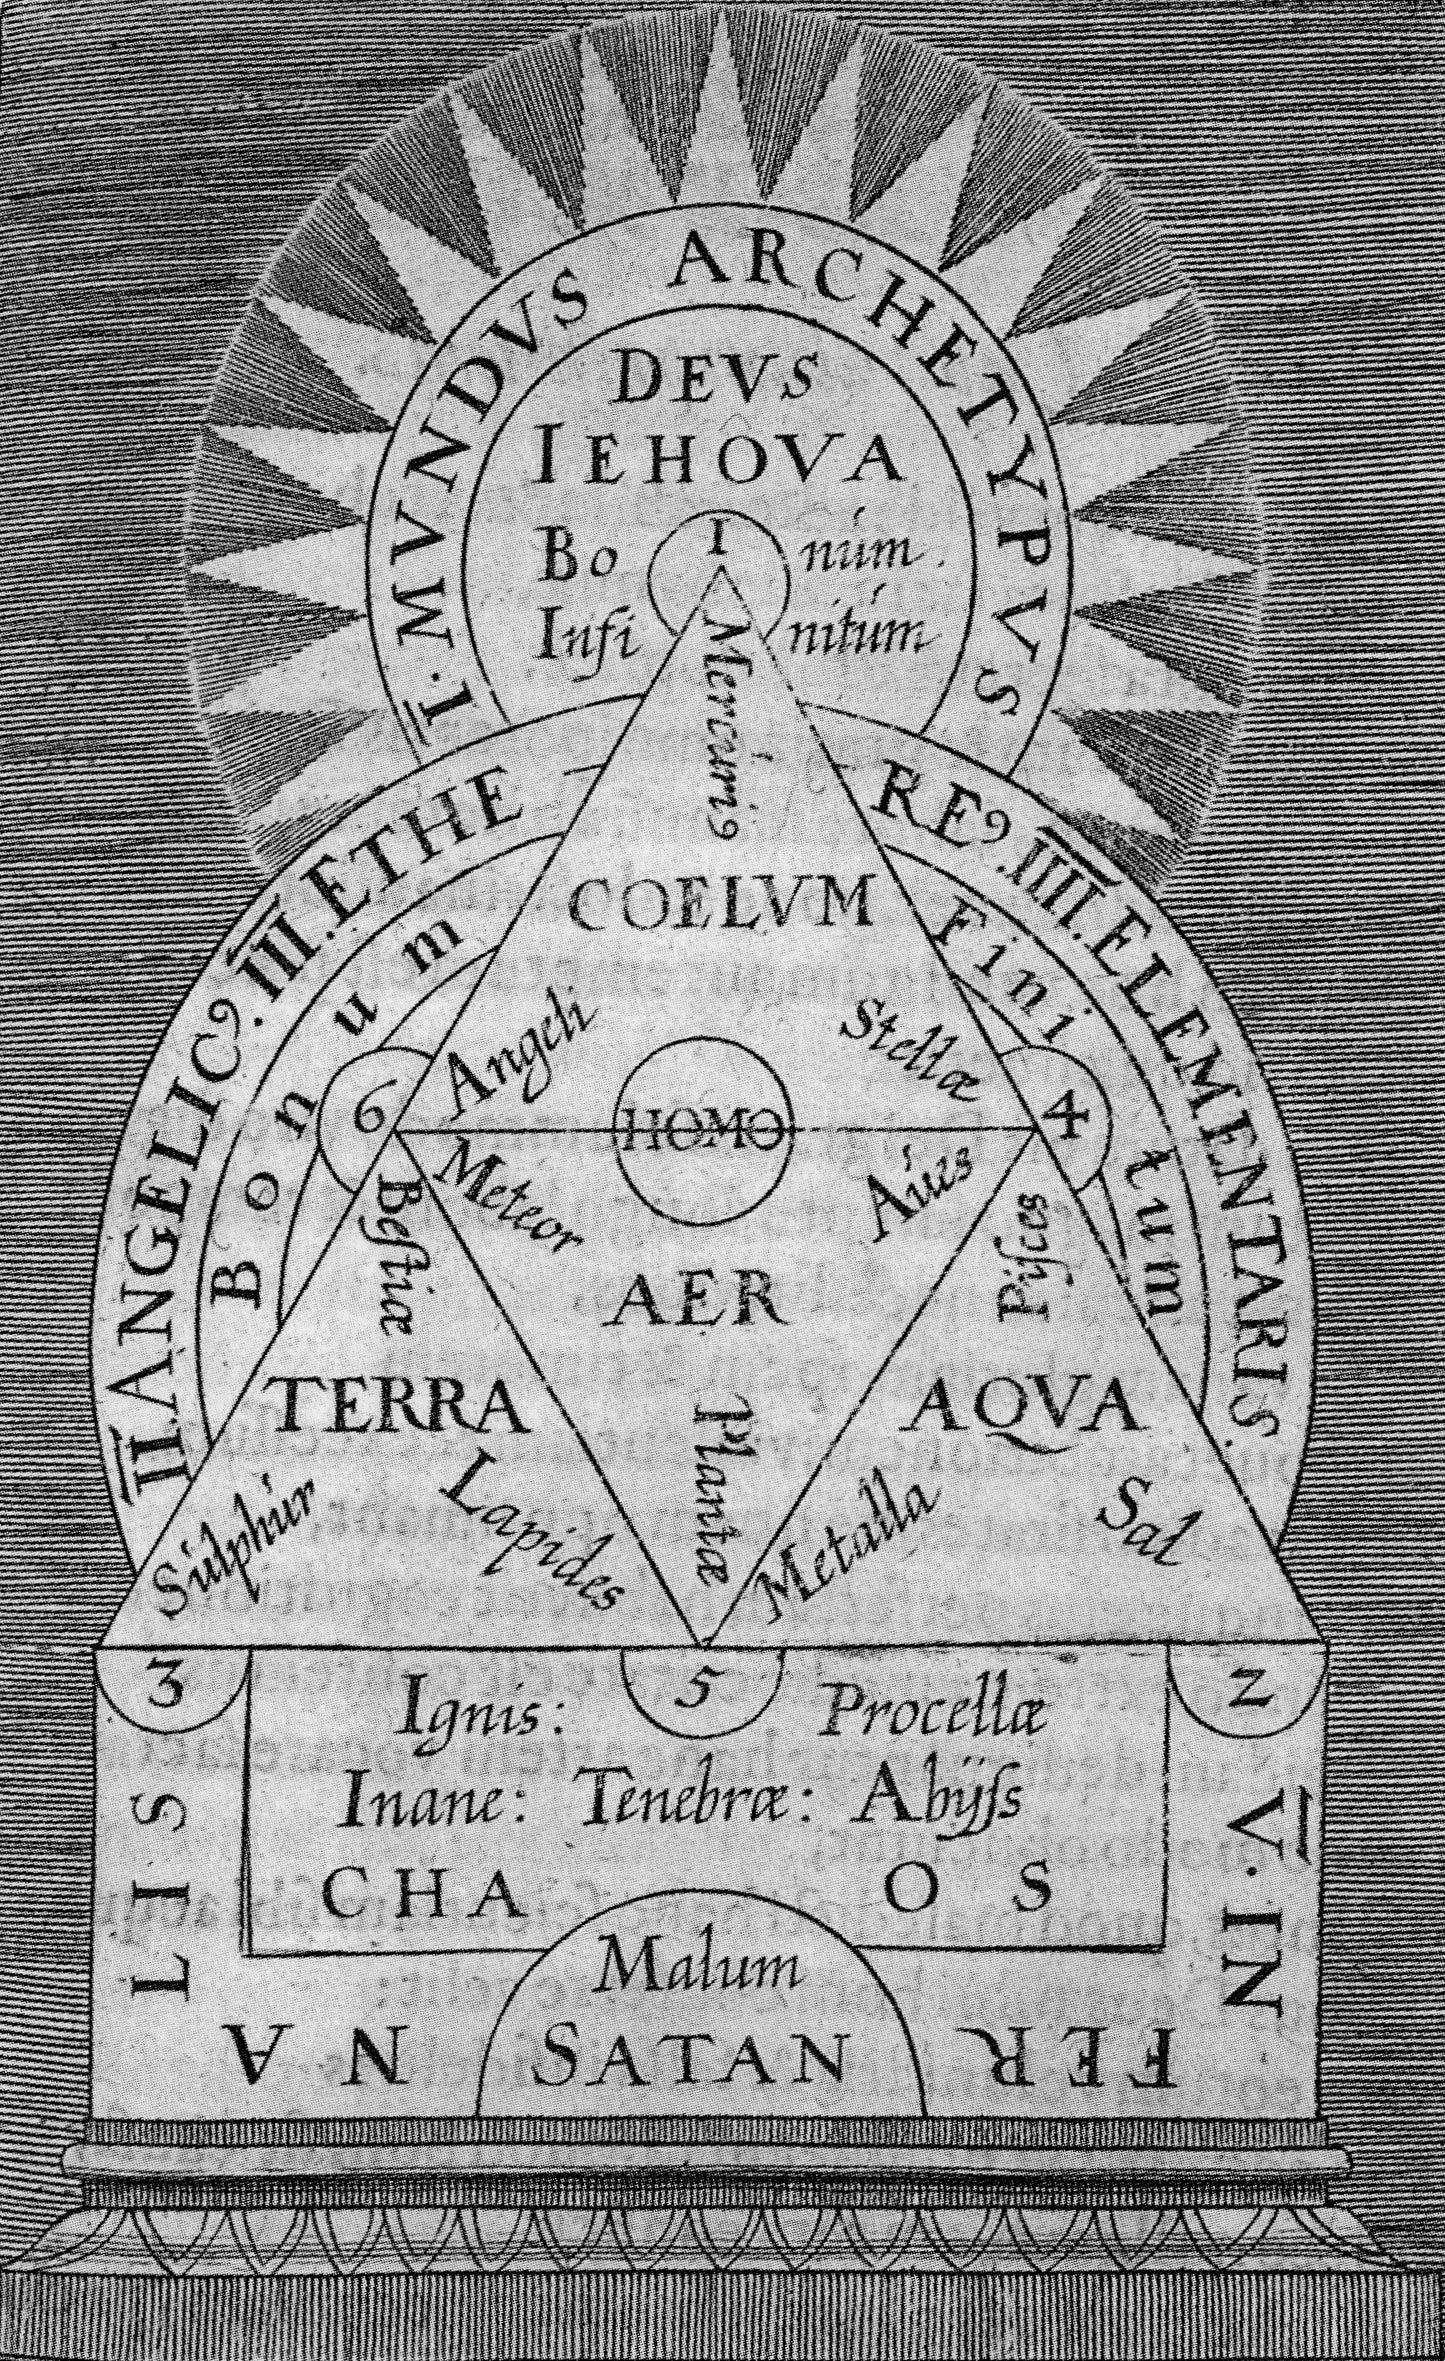 I. MVNDVS ARCHETYPVS
DEVS
IEHOVA
Bo núm.
Infi nitúm
1
Mercúriꝰ
II. ANGELICꝰ. III. ETHE REꝰ. IIII. ELEMENTARIS.
Bonum
Finitum
COELVM
Angeli
Stellæ
6
HOMO
4
Meteor
Aúes
Beſtiæ
Piſces
AER
TERRA
AQVA
Plantæ
Súlphúr
Lapides
Metalla
Sal
3
5
2
Ignis: Procellæ
Inane: Tenebræ: Abÿſs
CHA OS
Malum
SATAN
V. IN FER NA LIS